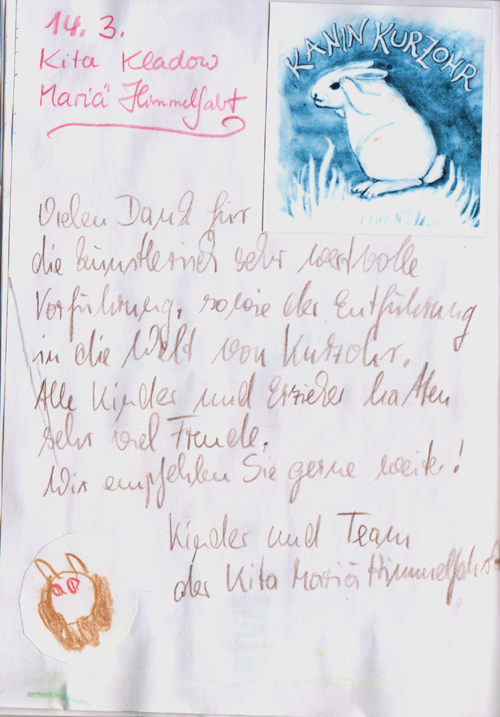 14. 3.
Kita Kladow
Mariä Himmelfahrt
KANIN KURZOHR
Vielen Dank für
die künstlerisch sehr wertvolle
Vorführung, sowie der Entführung
in die Welt von Kurzohr.
Alle Kinder und Erzieher hatten
sehr viel Freude.
Wir empfehlen Sie gerne weiter!
Kinder und Team
der Kita Mariä Himmelfahrt